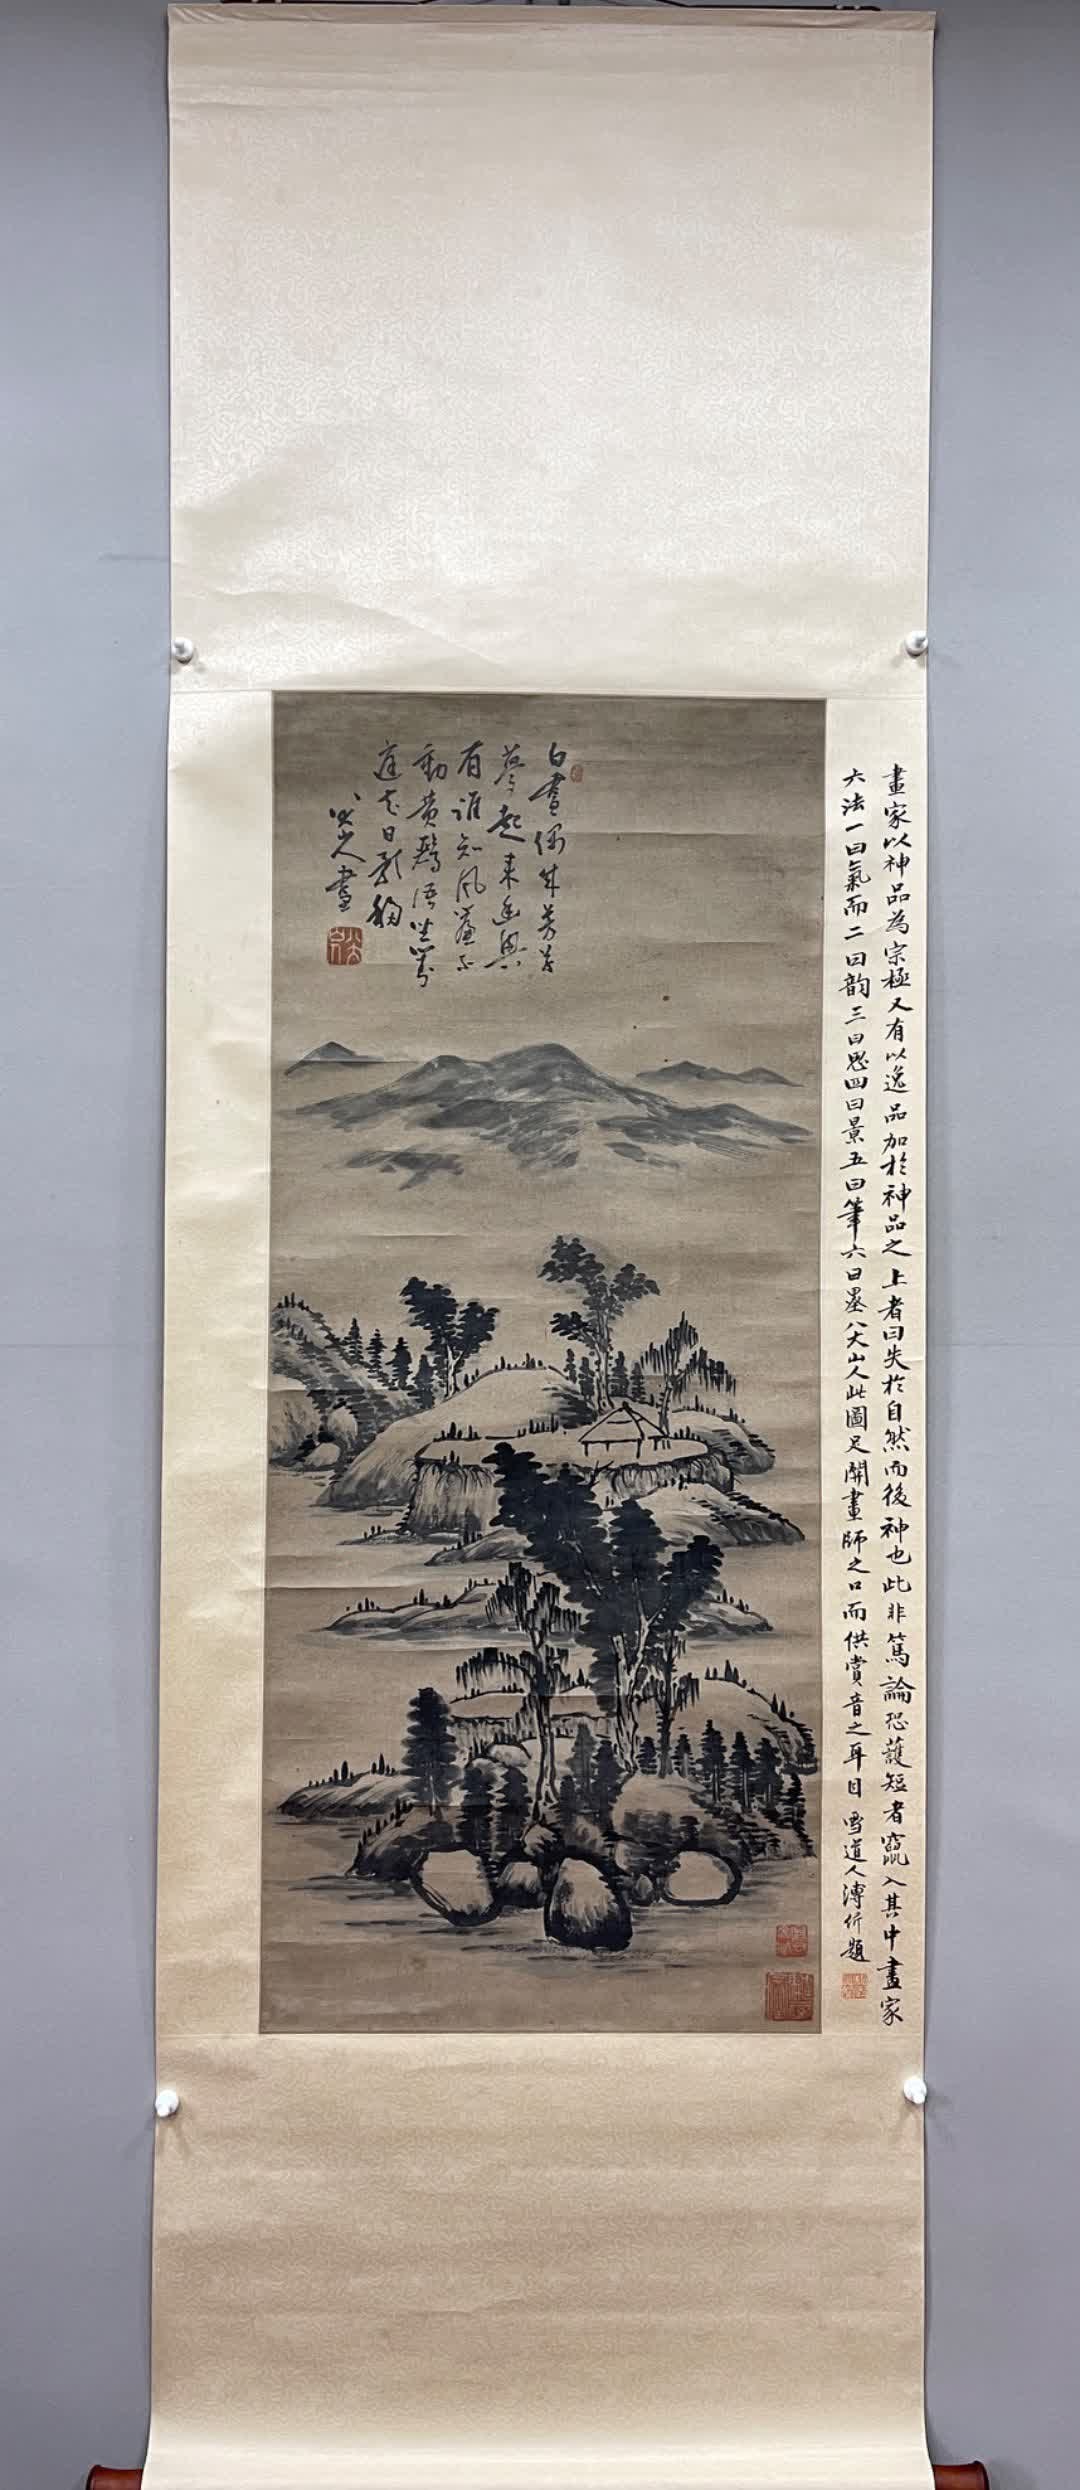 白晝偶成芳草
夢起來幽興
有誰知風簾不
動黃鸝語坐看
庭花日影移
八大山人畫
畫家以神品為宗極又有以逸品加於神品之上者曰失於自然而後神也此非篤論恐護短者竄入其中畫家
六法一曰氣而二曰韵三曰思四曰景五曰筆六曰墨八大山人此圖足關畫師之口而供賞音之耳目 雪道人溥伒題